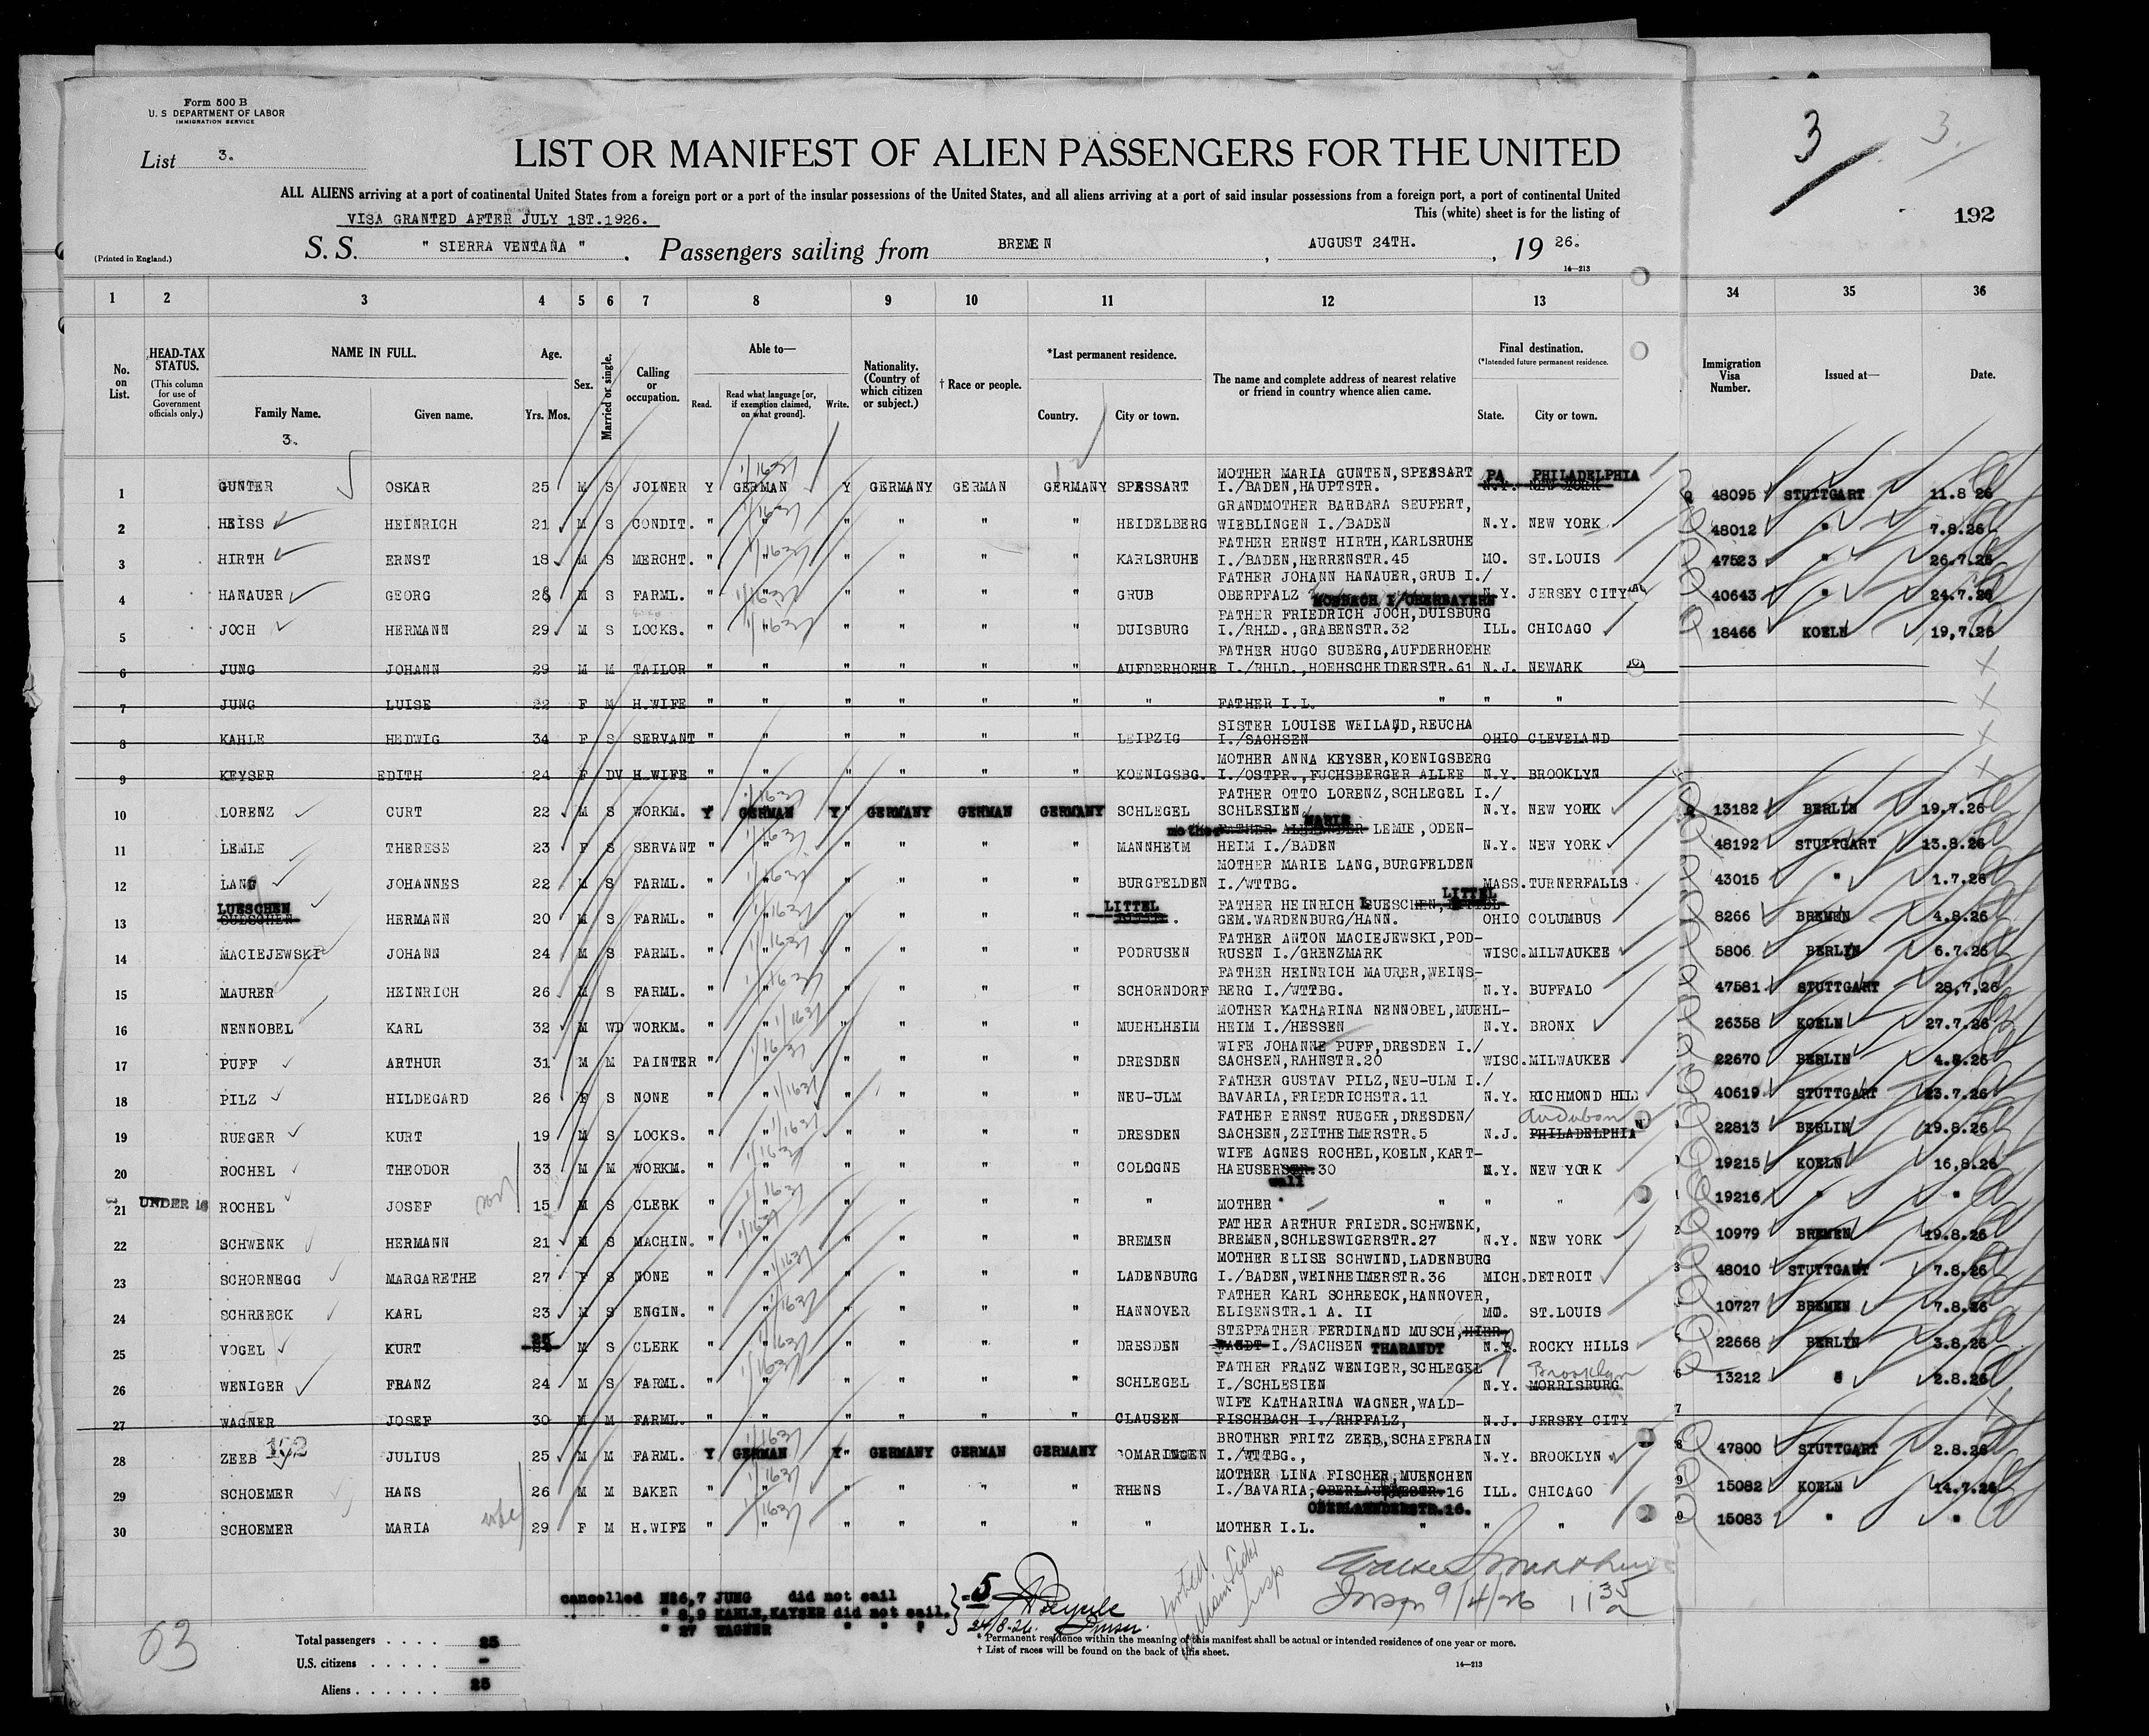 Form 500 B
U. S DEPARTMENT OF LABOR
IMMIGRATION SERVICE
List 3.
LIST OR MANIFEST OF ALIEN PASSENGERS FOR THE UNITED
3 3.
ALL ALIENS arriving at a port of continental United States from a foreign port or a port of the insular possessions of the United States, and all aliens arriving at a port of said insular possessions from a foreign port, a port of continental United
VISA GRANTED AFTER JULY 1ST.1926.
This (white) sheet is for the listing of
192
(Printed in England.)
S. S. " SIERRA VENTAÑA " . Passengers sailing from BREMEN , AUGUST 24TH. , 19 26.
14—213
1 2 3 4 5 6 7 8 9 10 11 12 13 34 35 36
No. on List.
HEAD-TAX STATUS.
(This column for use of Government officials only.)
NAME IN FULL.
Family Name.
3.
Given name.
Age.
Yrs. Mos.
Sex.
Married or single.
Calling or occupation.
Able to—
Read.
Read what language [or, if exemption claimed, on what ground].
Write.
Nationality. (Country of which citizen or subject.)
† Race or people.
*Last permanent residence.
Country.
City or town.
The name and complete address of nearest relative or friend in country whence alien came.
Final destination.
(*Intended future permanent residence.
State.
City or town.
Immigration Visa Number.
Issued at—
Date.
MOTHER MARIA GUNTEN,SPESSART PA. PHILADELPHIA
1 GUNTER OSKAR 25 M S JOINER Y GERMAN Y GERMANY GERMAN GERMANY SPESSART I./BADEN,HAUPTSTR. N.Y. NEW YORK 48095 STUTTGART 11.8 26
GRANDMOTHER BARBARA SEUFERT,
2 HEISS HEINRICH 21 M S CONDIT. " " " " " " HEIDELBERG WIEBLINGEN I./BADEN N.Y. NEW YORK 48012 " 7.8.26
FATHER ERNST HIRTH,KARLSRUHE
3 HIRTH ERNST 18 M S MERCHT. " " " " " " KARLSRUHE I./BADEN,HERRENSTR.45 MO. ST.LOUIS 47523 " 26.7.26
FATHER JOHANN HANAUER,GRUB I./
4 HANAUER GEORG 28 M S FARML. " " " " " " GRUB OBERPFALZ MOSBACH I/OBERBAYERN N.Y. JERSEY CITY 40643 " 24.7.26
FATHER FRIEDRICH JOCH,DUISBURG
5 JOCH HERMANN 29 M S LOCKS. " " " " " " DUISBURG I./RHLD.,GRABENSTR.32 ILL. CHICAGO 18466 KOELN 19,7.26
FATHER HUGO SUBERG,AUFDERHOEHE
6 JUNG JOHANN 29 M M TAILOR " " " " " " AUFDERHOEHE I./RHLD.,HOEHSCHEIDERSTR.61 N.J. NEWARK
7 JUNG LUISE 22 F M H.WIFE " " " " " " " FATHER I.L. " " "
SISTER LOUISE WEILAND,REUCHA
8 KAHLE HEDWIG 34 F S SERVANT " " " " " " LEIPZIG I./SACHSEN OHIO CLEVELAND
MOTHER ANNA KEYSER,KOENIGSBERG
9 KEYSER EDITH 24 F DV H.WIFE " " " " " " KOENIGSBG. I./OSTPR.,FUCHSBERGER ALLEE N.Y. BROOKLYN
FATHER OTTO LORENZ,SCHLEGEL I./
10 LORENZ CURT 22 M S WORKM. Y GERMAN Y GERMANY GERMAN GERMANY SCHLEGEL SCHLESIEN N.Y. NEW YORK 13182 BERLIN 19.7.26
mother FATHER ALEXANDER MARIE LEMIE,ODEN-
11 LEMLE THERESE 23 F S SERVANT " " " " " " MANNHEIM HEIM I./BADEN N.Y. NEW YORK 48192 STUTTGART 13.8.26
MOTHER MARIE LANG,BURGFELDEN
12 LANG JOHANNES 22 M S FARML. " " " " " " BURGFELDEN I./WTTBG. MASS. TURNERFALLS 43015 " 1.7.26
LUESCHEN LITTEL FATHER HEINRICH LUESCHEN, LITTEL
13 HERMANN 20 M S FARML. " " " " " " GEM.WARDENBURG/HANN. OHIO COLUMBUS 8266 BREMEN 4.8.26
FATHER ANTON MACIEJEWSKI,POD-
14 MACIEJEWSKI JOHANN 24 M S FARML. " " " " " " PODRUSEN RUSEN I./GRENZMARK WISC. MILWAUKEE 5806 BERLIN 6.7.26
FATHER HEINRICH MAURER,WEINS-
15 MAURER HEINRICH 26 M S FARML. " " " " " " SCHORNDORF BERG I./WTTBG. N.Y. BUFFALO 47581 STUTTGART 28,7,26
MOTHER KATHARINA NENNOBEL,MUEHL-
16 NENNOBEL KARL 32 M WD WORKM. " " " " " " MUEHLHEIM HEIM I./HESSEN N.Y. BRONX 26358 KOELN 27.7.26
WIFE JOHANNE PUFF,DRESDEN I./
17 PUFF ARTHUR 31 M M PAINTER " " " " " " DRESDEN SACHSEN,RAHNSTR.20 WISC. MILWAUKEE 22670 BERLIN 4.8.26
FATHER GUSTAV PILZ,NEU-ULM I./
18 PILZ HILDEGARD 26 F S NONE " " " " " " NEU-ULM BAVARIA,FRIEDRICHSTR.11 N.Y. RICHMOND HILL 40619 STUTTGART 23.7.26
FATHER ERNST RUEGER,DRESDEN/ Audubon
19 RUEGER KURT 19 M S LOCKS. " " " " " " DRESDEN SACHSEN,ZEITHEIMERSTR.5 N.J. PHILADELPHIA 22813 BERLIN 19.8.26
WIFE AGNES ROCHEL,KOELN,KART-
20 ROCHEL THEODOR 33 M M WORKM. " " " " " " COLOGNE HAEUSERSTR.30 N.Y. NEW YORK 19215 KOELN 16,8.26
wall
21 UNDER 16 ROCHEL JOSEF son 15 M S CLERK " " " " " " " MOTHER " " " " 19216 " "
FATHER ARTHUR FRIEDR.SCHWENK,
22 SCHWENK HERMANN 21 M S MACHIN. " " " " " " BREMEN BREMEN,SCHLESWIGERSTR.27 N.Y. NEW YORK 10979 BREMEN 19.8.26
MOTHER ELISE SCHWIND,LADENBURG
23 SCHORNEGG MARGARETHE 27 F S NONE " " " " " " LADENBURG I./BADEN,WEINHEIMERSTR.36 MICH. DETROIT 48010 STUTTGART 7.8.26
FATHER KARL SCHREECK,HANNOVER,
24 SCHREECK KARL 23 M S ENGIN. " " " " " " HANNOVER ELISENSTR.1 A. II MO. ST.LOUIS 10727 BREMEN 7.8.26
STEPFATHER FERDINAND MUSCH,
25 VOGEL KURT 25 M S CLERK " " " " " " DRESDEN I./SACHSEN THARANDT N.Y. ROCKY HILLS 22668 BERLIN 3.8.26
FATHER FRANZ WENIGER,SCHLEGEL Brooklyn
26 WENIGER FRANZ 24 M S FARML. " " " " " " SCHLEGEL I./SCHLESIEN N.Y. MORRISBURG 13212 " 2.8.26
WIFE KATHARINA WAGNER,WALD-
27 WAGNER JOSEF 30 M M FARML. " " " " " " CLAUSEN FISCHBACH I./RHPFALZ, N.J. JERSEY CITY
BROTHER FRITZ ZEEB,SCHAEFERAIN
28 ZEEB 192 JULIUS 25 M M FARML. Y GERMAN Y GERMANY GERMAN GERMANY GOMARINGEN I./WTTBG., N.Y. BROOKLYN 47800 STUTTGART 2.8.26
MOTHER LINA FISCHER,MUENCHEN
29 SCHOEMER HANS 26 M M BAKER " " " " " " RHENS I./BAVARIA, 16 ILL. CHICAGO 15082 KOELN 14.7.26
OBERLAENDERSTR.16.
30 SCHOEMER MARIA wife 29 F M H.WIFE " " " " " " " MOTHER I.L. " " " 15083 " "
cancelled NS6,7 JUNG did not sail
" 8,9 KAHLE,KAYSER did not sail.
" 27 WAGNER " " "
= 5
24/8.26.
Insp 9/4/26 11 35 a
63
Total passengers . . . . 25
U.S. citizens . . . . . -
Aliens . . . . . . 25
* Permanent residence within the meaning of this manifest shall be actual or intended residence of one year or more.
† List of races will be found on the back of this sheet.
14—213